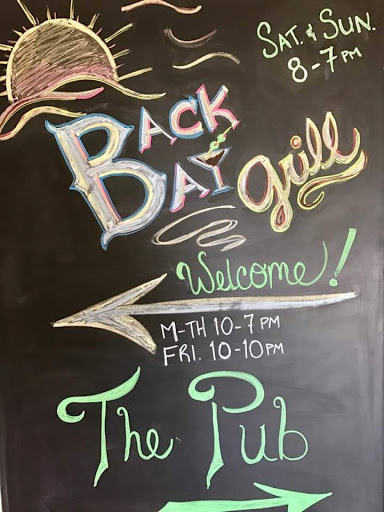 SAT. & SUN.
8-7 PM
BACK
BAY grill
Welcome!
M-TH 10-7 PM
FRI. 10-10 PM
The Pub